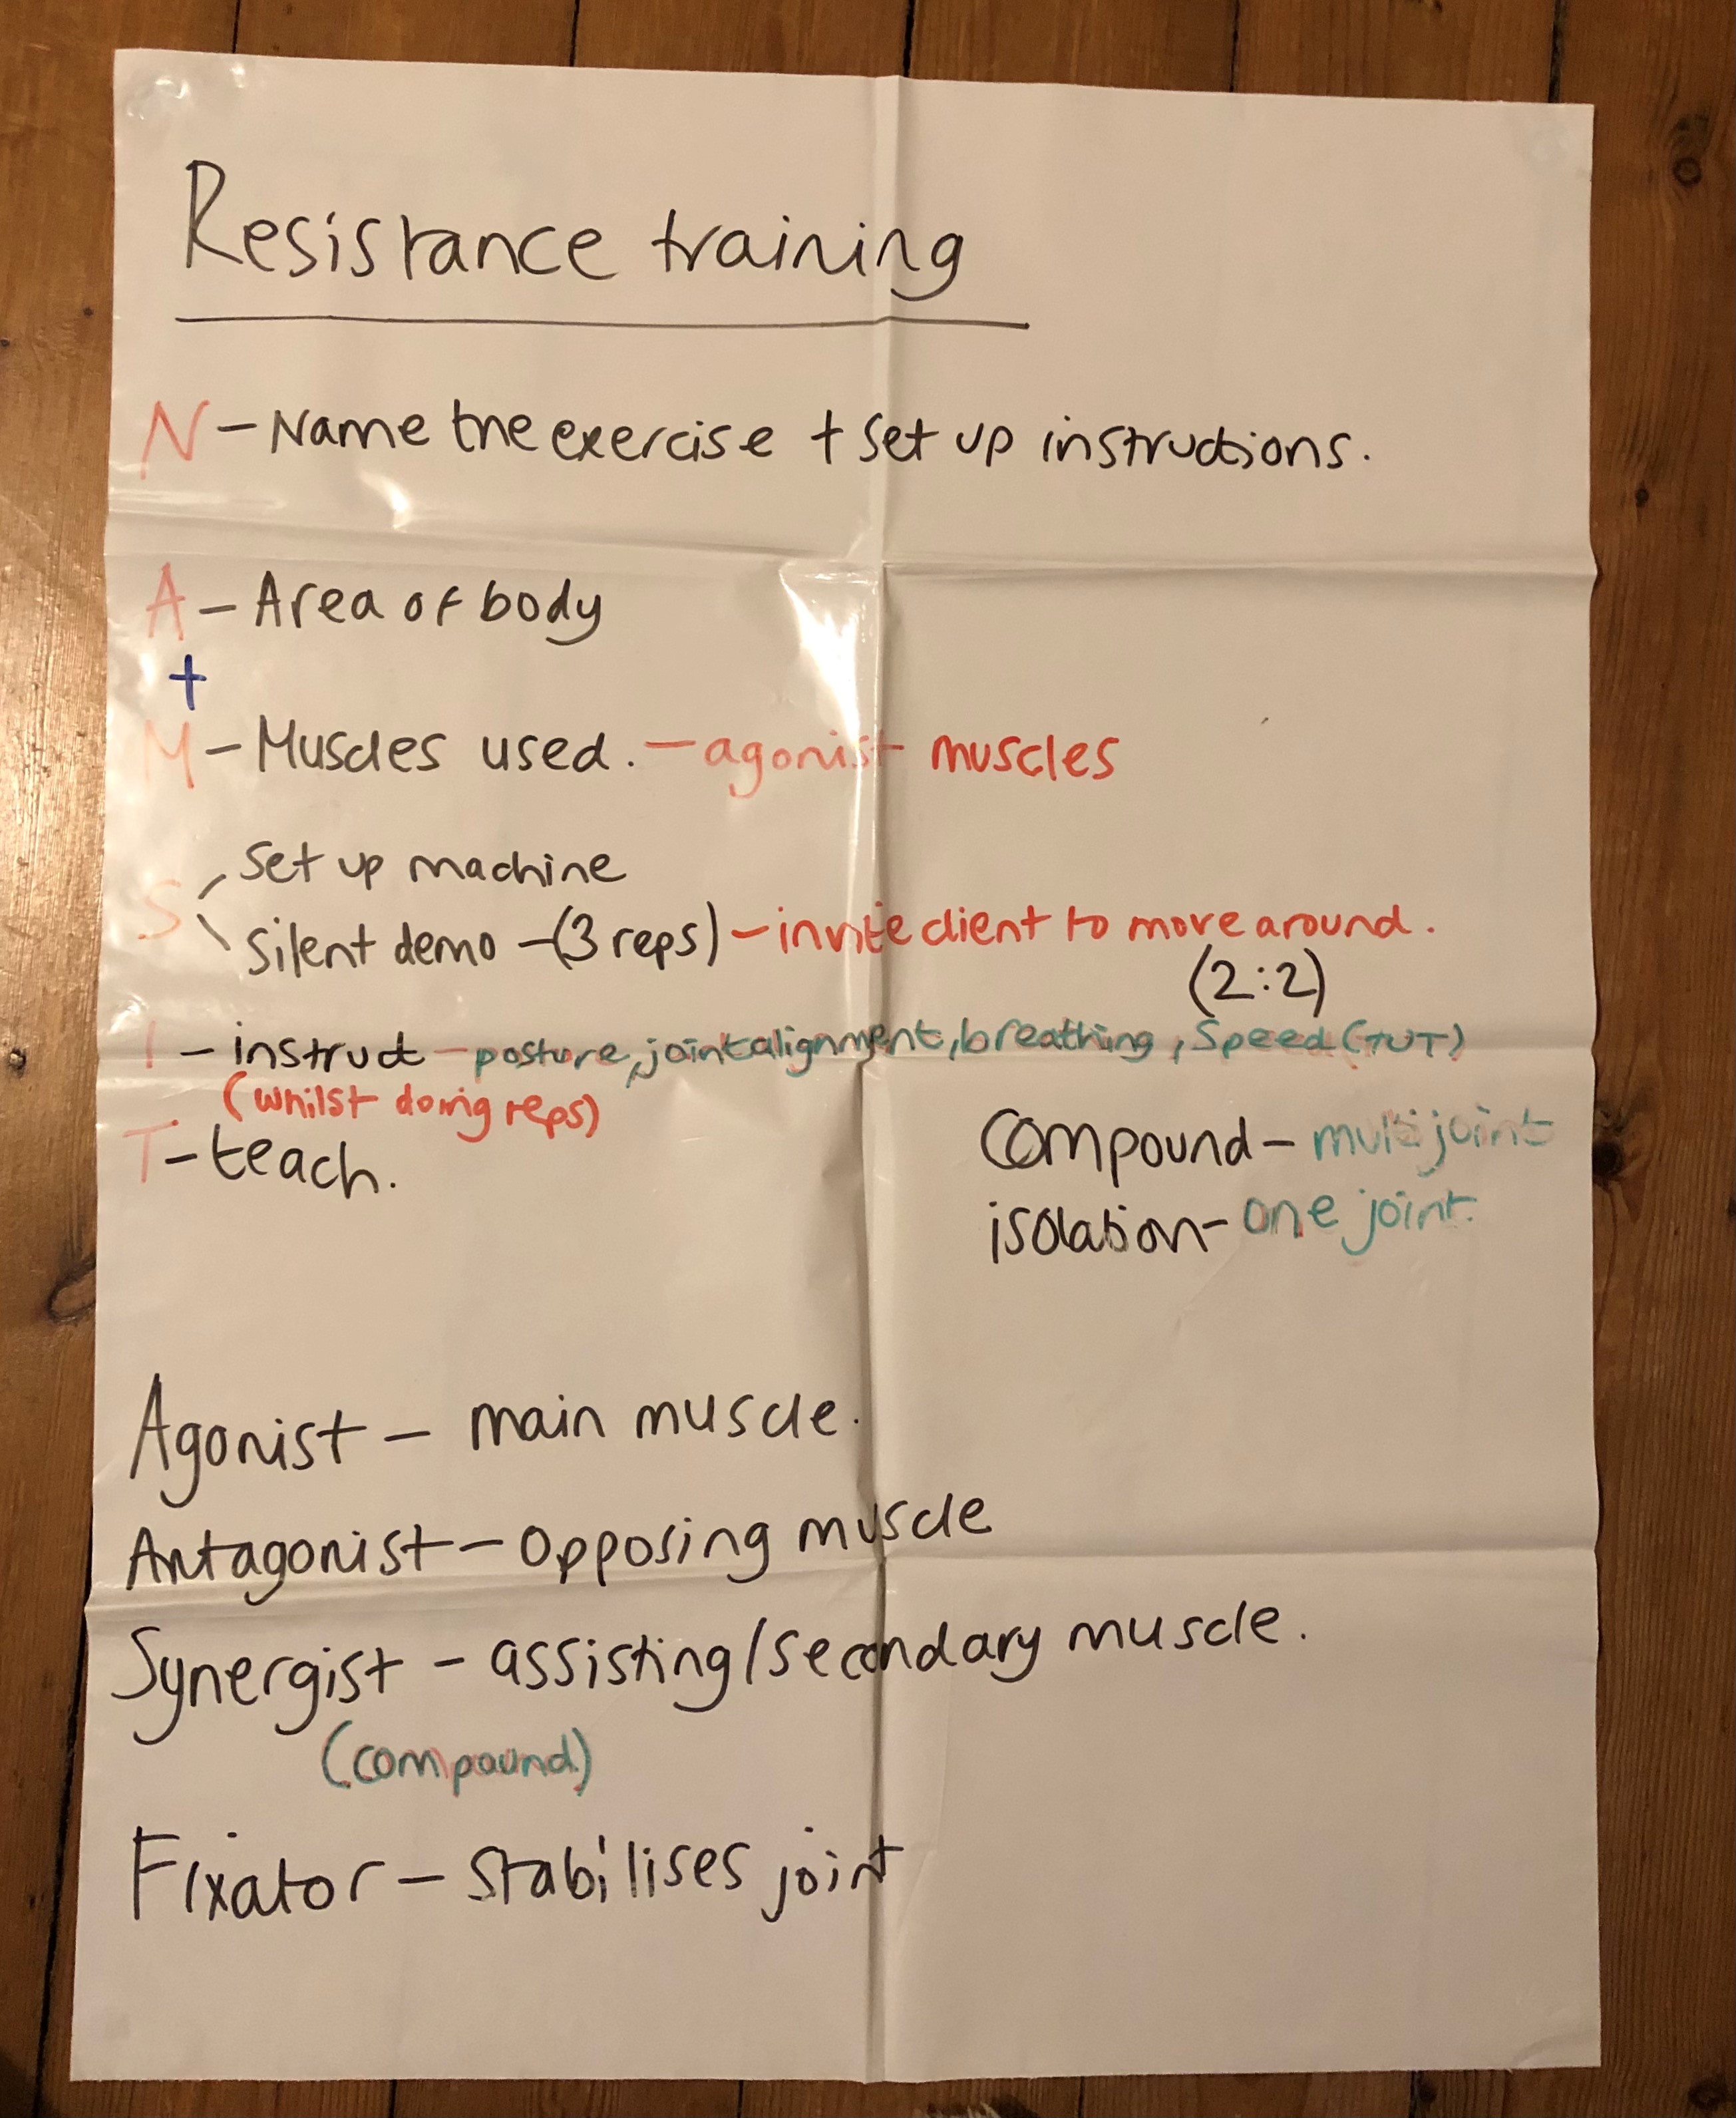 Resistance training
N - Name the exercise + set up instructions.
A - Area of body
+
M - Muscles used. - agonist muscles
S
set up machine
silent demo - (3 reps) - invite client to move around.
(2:2)
I - instruct - posture, joint alignment, breathing, speed (TUT)
(whilst doing reps)
T - teach.
Compound - multi joint
isolation - one joint.
Agonist - main muscle.
Antagonist - opposing muscle
Synergist - assisting/secondary muscle.
(compound)
Fixator - stabilises joint